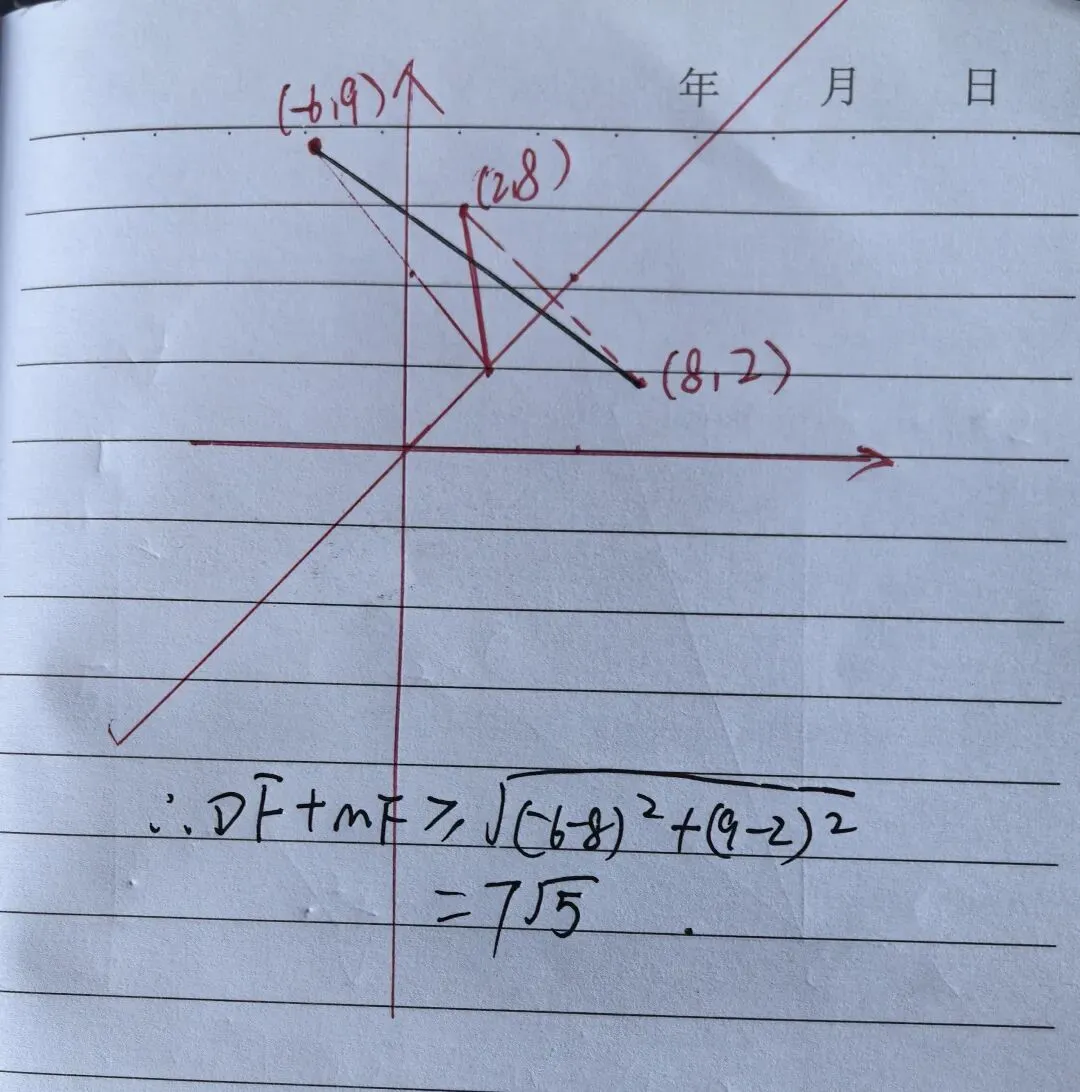 年 月 日
(-6,9)
(2,8)
(8,2)
∴DF+mF≥√(-6-8)²+(9-2)²
=7√5.